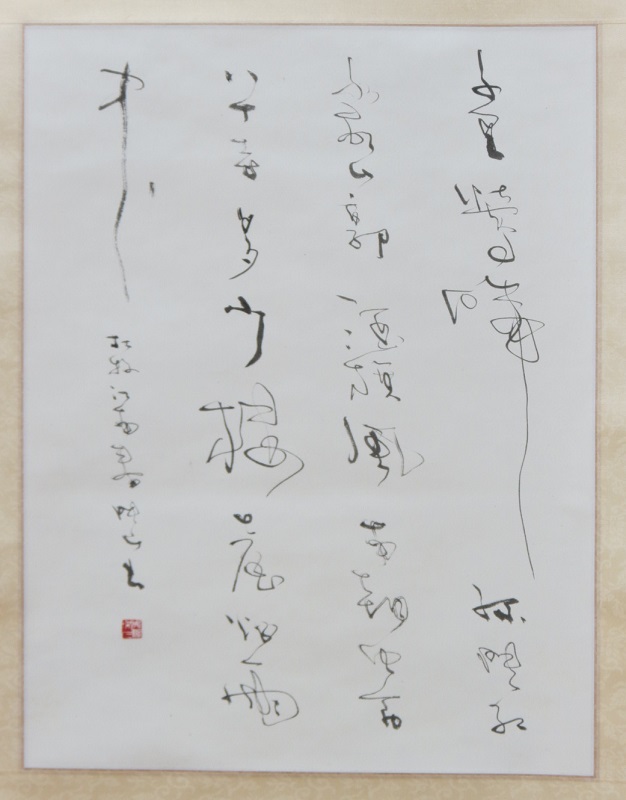 千里鶯啼綠映紅
水村山郭酒旗風南朝四百
八十寺多少樓臺煙雨
中
杜牧江南春